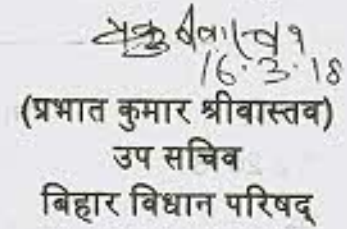 16.3.18
(प्रभात कुमार श्रीबास्तव)
उप सचिव
बिहार विधान परिषद्